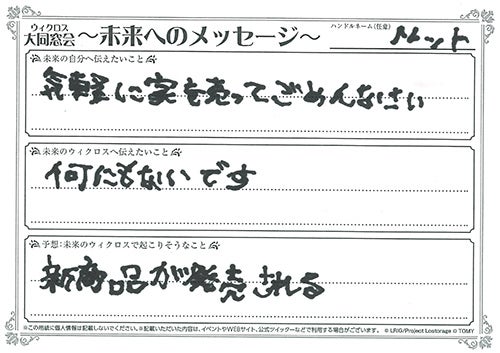 ウィクロス
大同窓会 ～未来へのメッセージ～
ハンドルネーム(任意)
メレット
未来の自分へ伝えたいこと
気軽に家を売ってごめんなさい
未来のウィクロスへ伝えたいこと
何にもないです
予想：未来のウィクロスで起こりそうなこと
新商品が発売される
※この用紙に個人情報は記載しないでください。※記載いただいた内容は、イベントやWEBサイト、公式ツイッターなどで利用する場合がございます。 © LRIG/Project Lostorage © TOMY